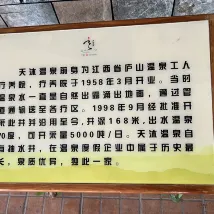 天沐温泉前身为江西省庐山温泉工人
疗养院，疗养院于1958年3月开业。当时
温泉水一直是自然出露涌出地面，通过管
道输送至各疗区。1998年9月经批准开
采此井并沿用至今，井深168米，出水温泉
70度，可开采量5000吨/日。天沐温泉自
有抽水井，在温泉度假企业中属于历史最
长，泉质优异，首屈一家。